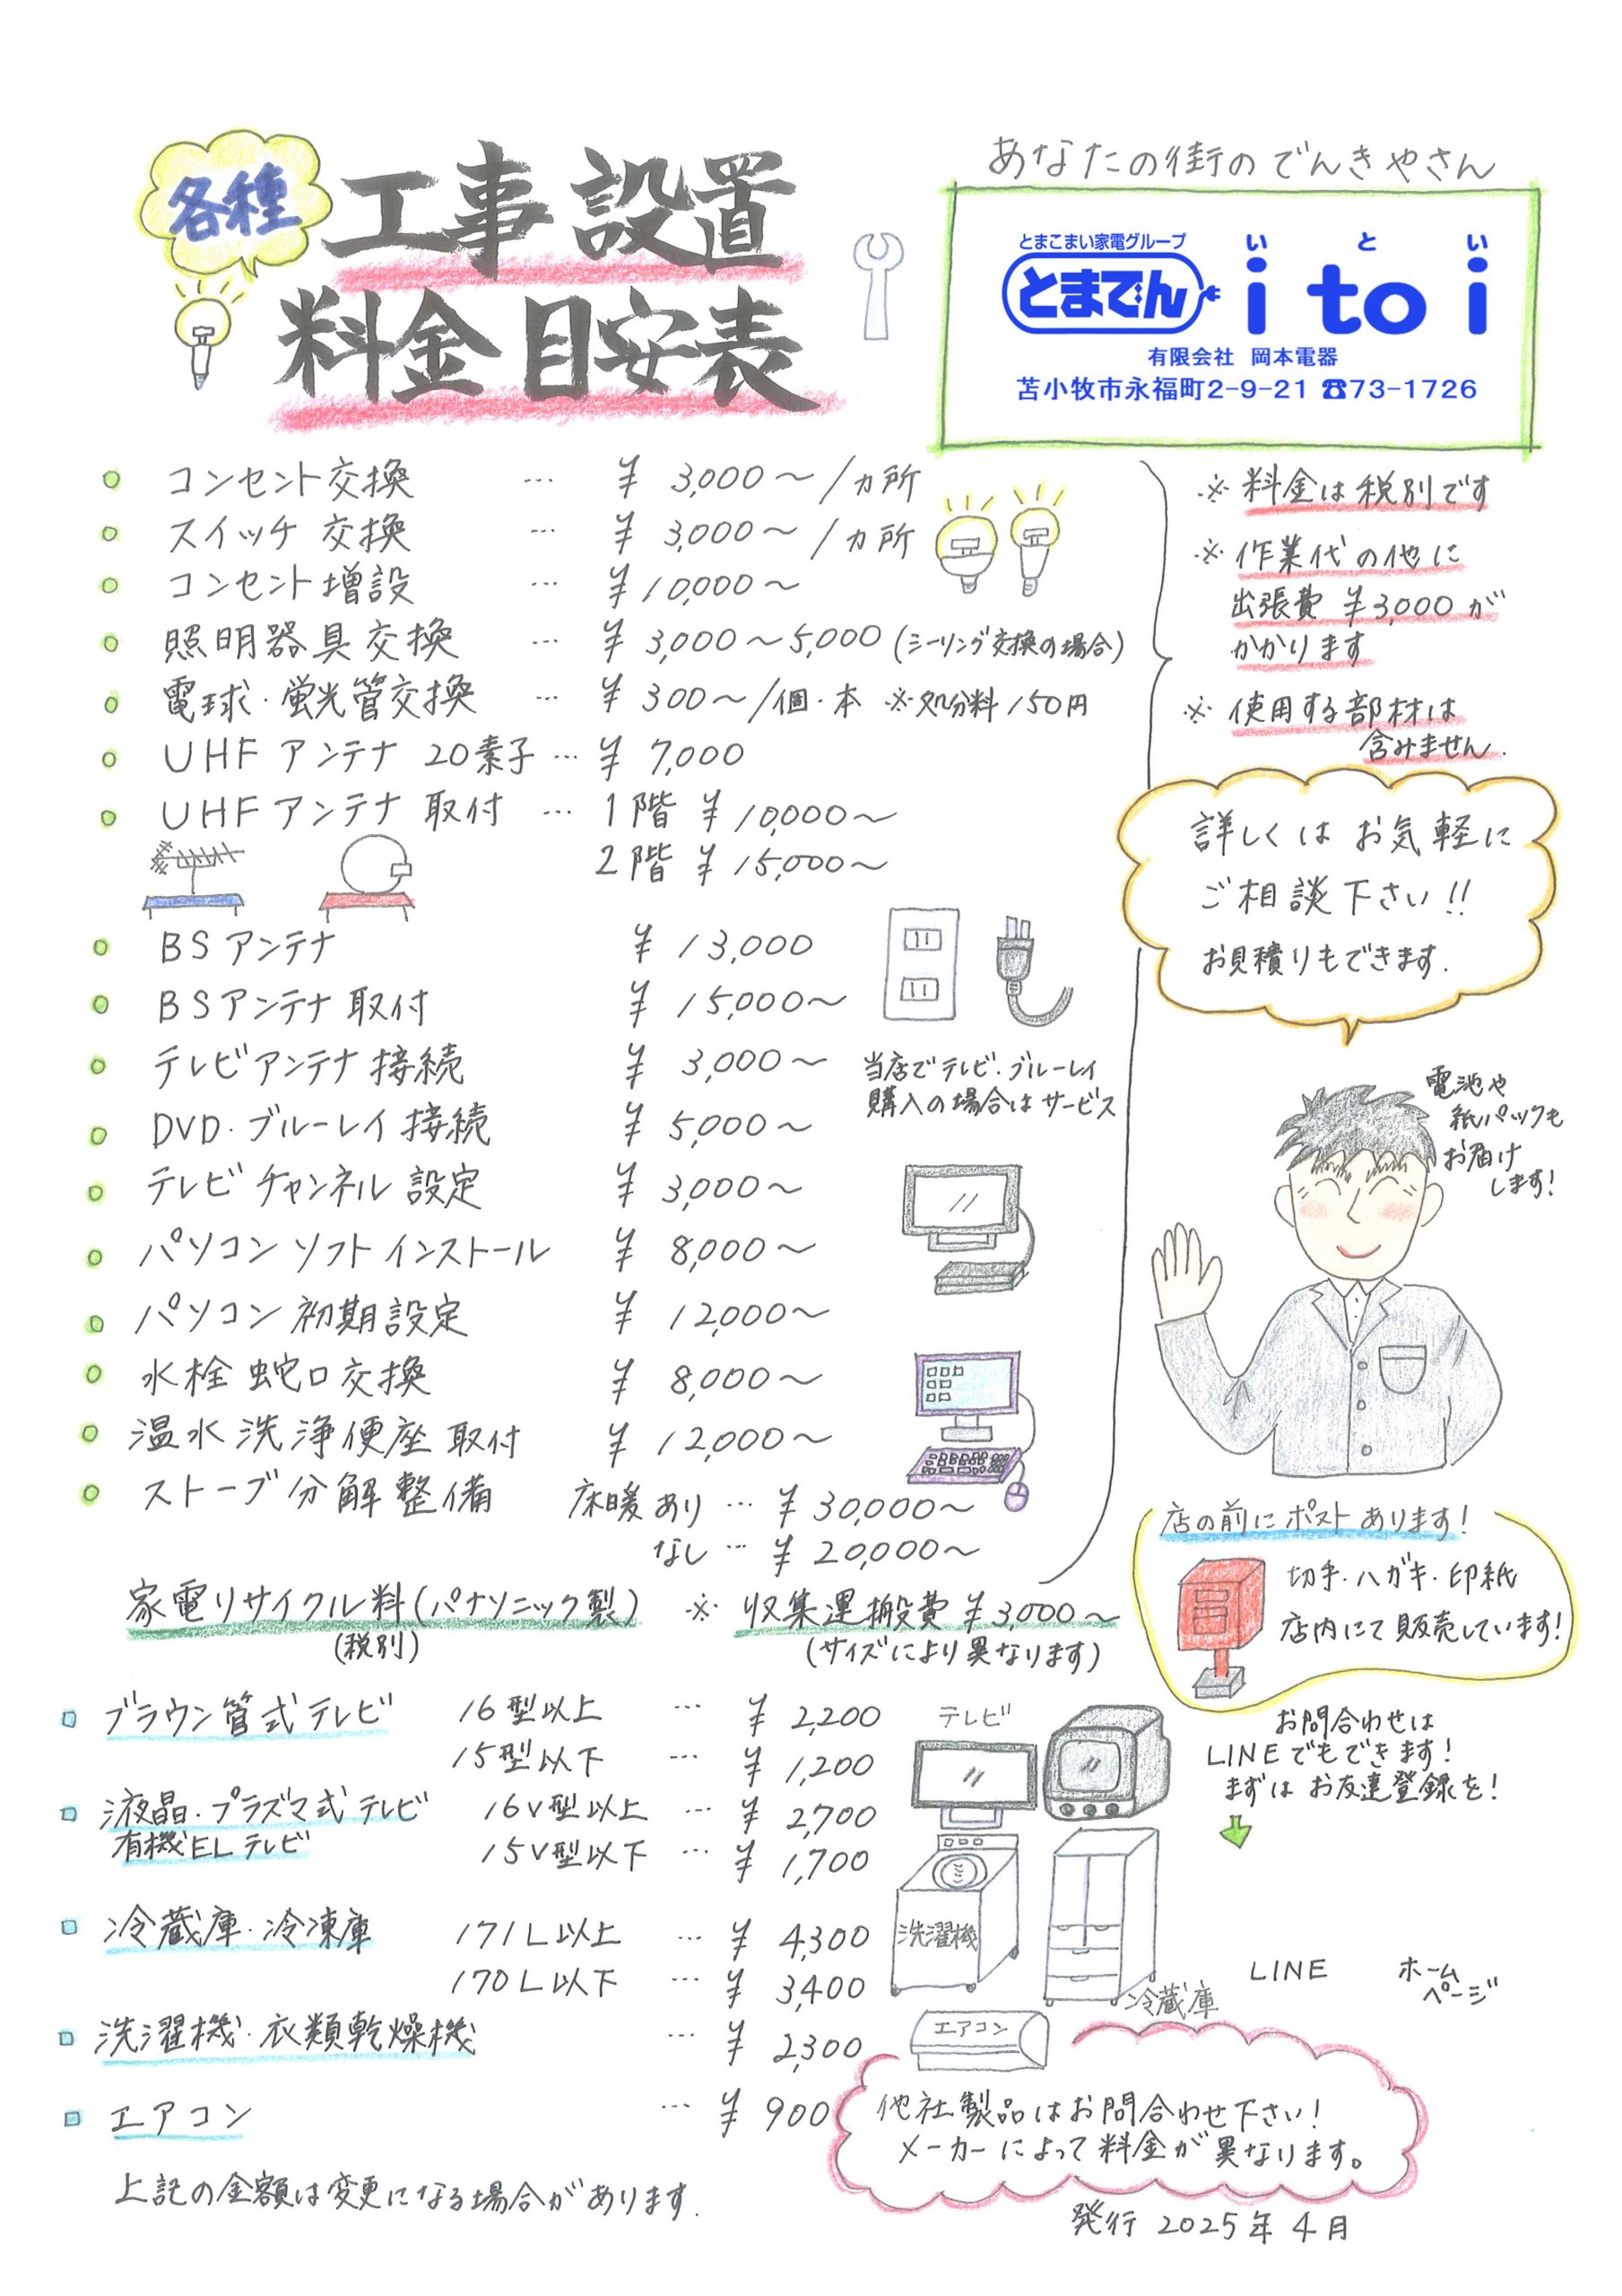 各種
工事設置
料金目安表
あなたの街のでんきやさん
とまこまい家電グループ
い と い
とまでん itoi
有限会社 岡本電器
苫小牧市永福町2-9-21 ☎73-1726
コンセント交換 … ¥3,000～/カ所
スイッチ交換 … ¥3,000～/カ所
コンセント増設 … ¥10,000～
照明器具交換 … ¥3,000～5,000(シーリング交換の場合)
電球・蛍光管交換 … ¥300～/個・本 ※処分料150円
UHFアンテナ 20素子 … ¥7,000
UHFアンテナ 取付 … 1階 ¥10,000～
2階 ¥15,000～
BSアンテナ ¥13,000
BSアンテナ取付 ¥15,000～
テレビアンテナ接続 ¥3,000～
当店でテレビ・ブルーレイ
購入の場合はサービス
DVD・ブルーレイ接続 ¥5,000～
テレビチャンネル設定 ¥3,000～
パソコンソフトインストール ¥8,000～
パソコン初期設定 ¥12,000～
水栓蛇口交換 ¥8,000～
温水洗浄便座取付 ¥12,000～
ストーブ分解整備 床暖あり … ¥30,000～
なし … ¥20,000～
※料金は税別です
※作業代の他に
出張費¥3,000が
かかります
※使用する部材は
含みません.
詳しくはお気軽に
ご相談下さい!!
お見積りもできます.
電池や
紙パックも
お届け
します!
店の前にポストあります!
切手・ハガキ・印紙
店内にて販売しています!
家電リサイクル料(パナソニック製) ※収集運搬費¥3,000～
(税別) (サイズにより異なります)
ブラウン管式テレビ 16型以上 … ¥2,200
15型以下 … ¥1,200
液晶・プラズマ式テレビ 16V型以上 … ¥2,700
有機ELテレビ 15V型以下 … ¥1,700
冷蔵庫・冷凍庫 171L以上 … ¥4,300
170L以下 … ¥3,400
洗濯機・衣類乾燥機 … ¥2,300
エアコン … ¥900
テレビ
洗濯機
冷蔵庫
エアコン
お問合わせは
LINEでもできます!
まずはお友達登録を!
LINE
ホーム
ページ
他社製品はお問合わせ下さい!
メーカーによって料金が異なります。
上記の金額は変更になる場合があります.
発行 2025年4月